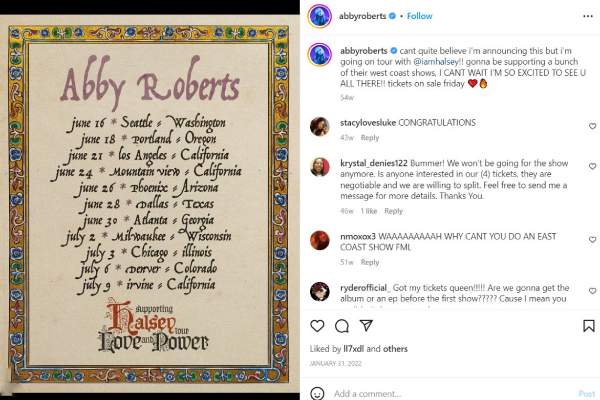 Abby Roberts
june 16 * Seattle - Washington
june 18 * portland - Oregon
june 21 * los Angeles - California
june 24 * Mountain view - California
june 26 * phoenix - Arizona
june 28 * Dallas - Texas
june 30 * Atlanta - Georgia
july 2 * Milwaukee - Wisconsin
july 3 * Chicago - illinois
july 6 * Denver - Colorado
july 9 * irvine - California
supporting
Halsey tour
Love and Power
abbyroberts • Follow
abbyroberts cant quite believe i'm announcing this but i'm
going on tour with @iamhalsey!! gonna be supporting a bunch
of their west coast shows, I CANT WAIT I'M SO EXCITED TO SEE U
ALL THERE!! tickets on sale friday ❤️🔥
54w
stacylovesluke CONGRATULATIONS
43w Reply
krystal_denies122 Bummer! We won't be going for the show
anymore. Is anyone interested in our (4) tickets, they are
negotiable and we are willing to split. Feel free to send me a
message for more details. Thank You.
46w 1 like Reply
nmoxox3 WAAAAAAAAAH WHY CANT YOU DO AN EAST
COAST SHOW FML
51w Reply
ryderofficial_ Got my tickets queen!!!!! Are we gonna get the
album or an ep before the first show????? Cause I mean you
Liked by ll7xdl and others
JANUARY 31, 2022
Add a comment...
Post